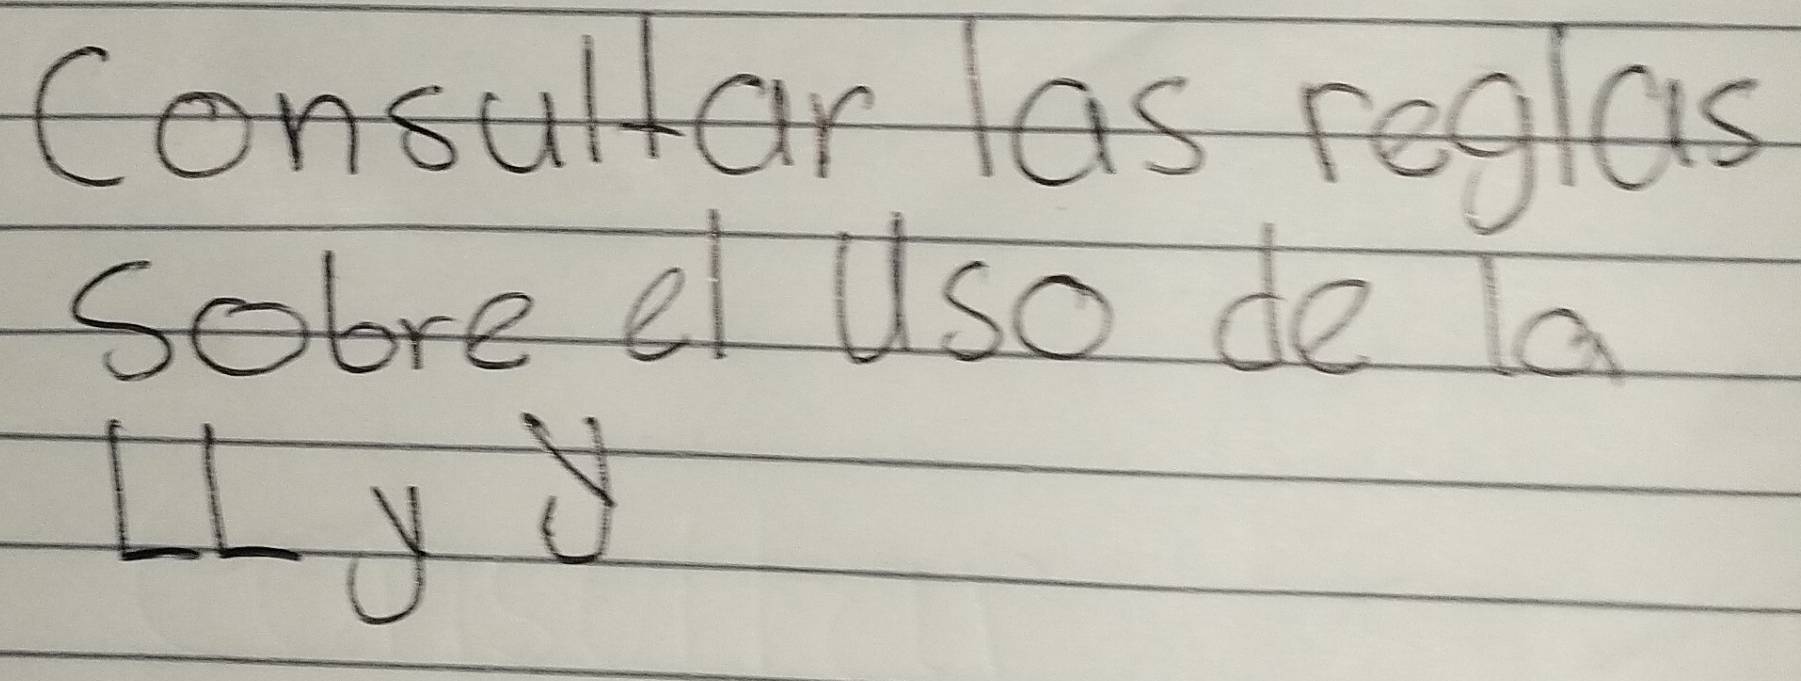 Consultar las reglas
sobre el Uso de la
LL y Y